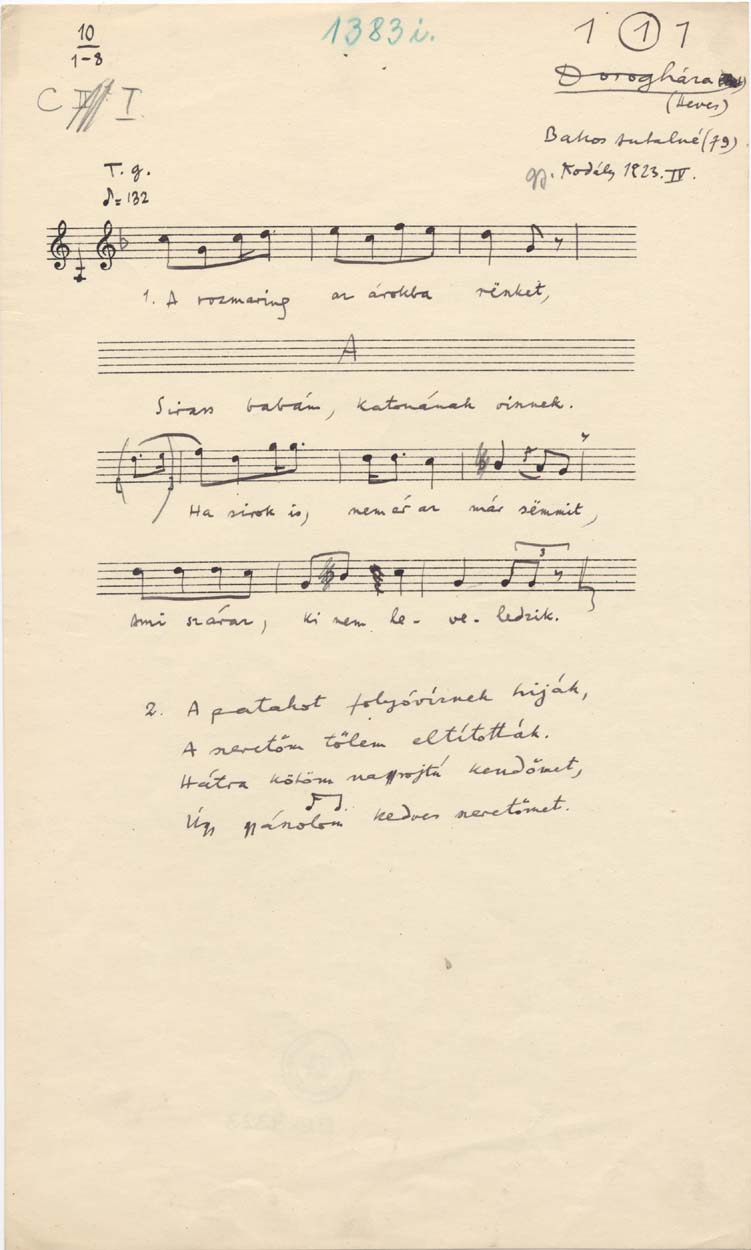 10
1-8
1383 i.
1 1 1
C II I.
Doroghára
(Heves)
Bakos Antalné (79)
gy. Kodály 1923. IV.
T. g.
♪=132
1. A rozmaring az árokba rënket,
A
Sirass babám, katonának visznek.
Ha sirok is, nem ér az már sëmmit,
Ami száraz, ki nem le- ve- ledzik.
3
2. A patakot folyóvíznek hiják,
A szeretőm tőlem eltították.
Hátra kötöm nagyrojtú kendőmet,
Úgy gyászolom kedves szeretőmet.